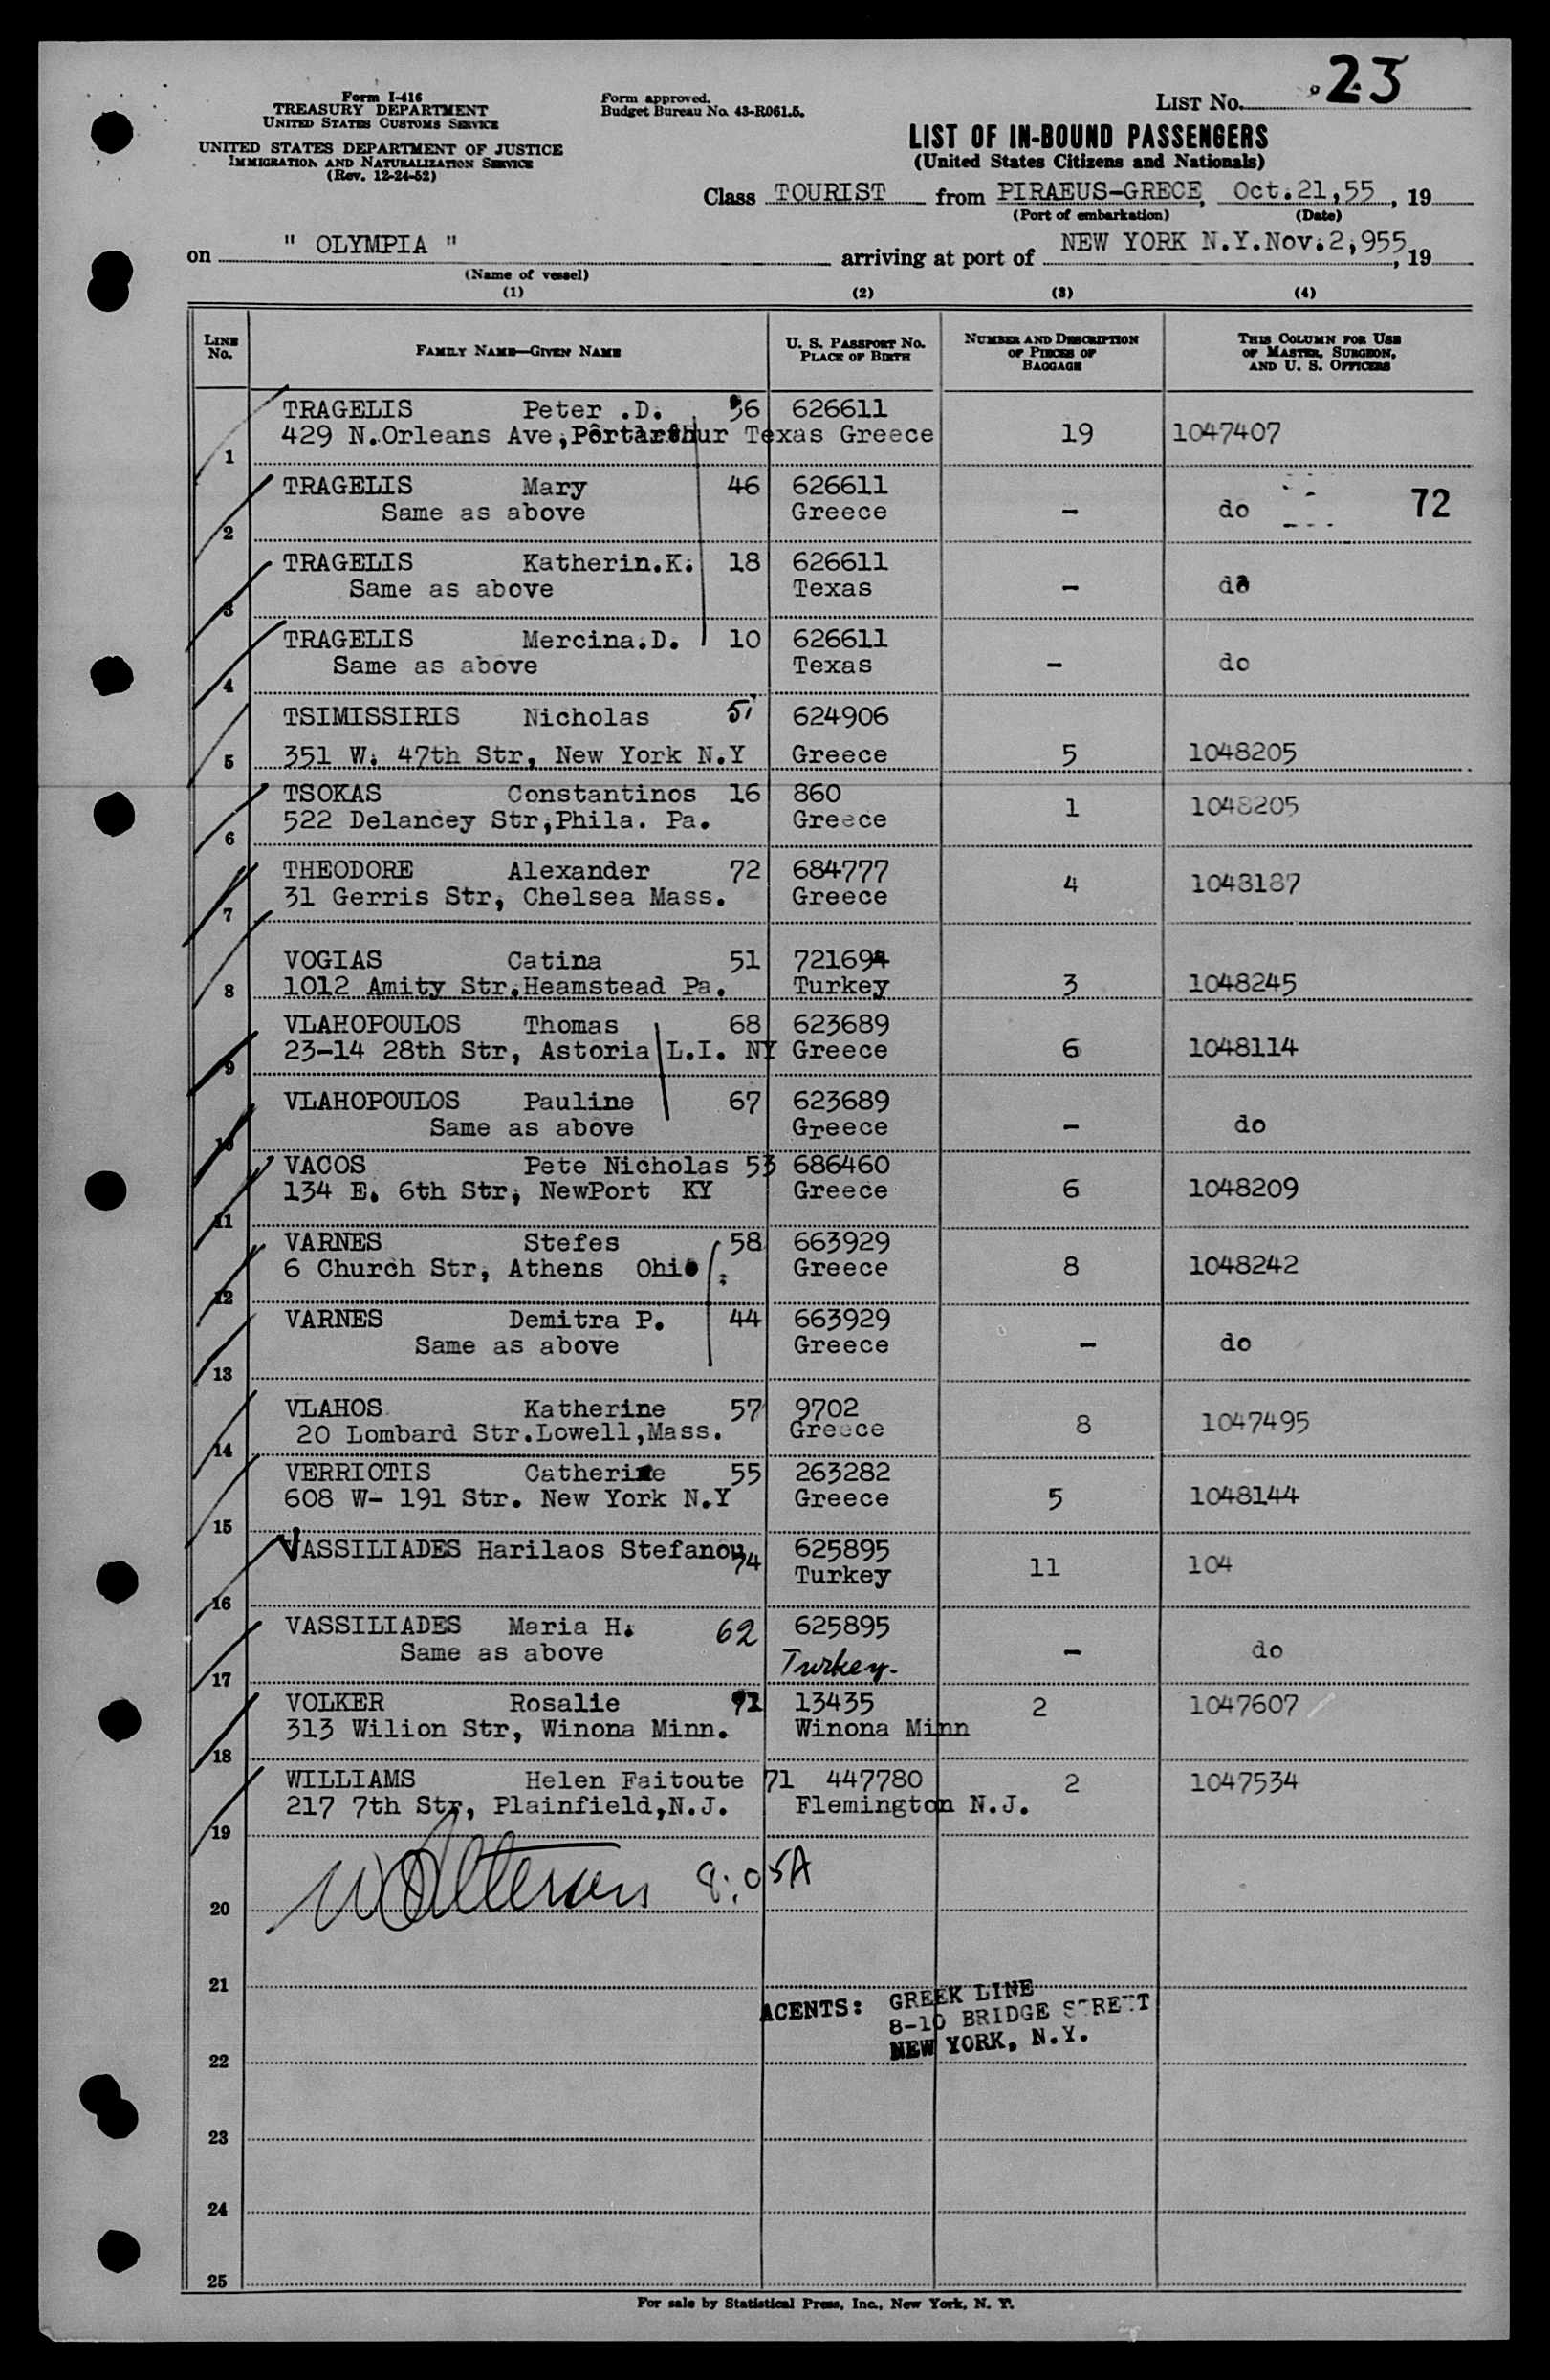 LIST No. 23
Form I-416
TREASURY DEPARTMENT
UNITED STATES CUSTOMS SERVICE
UNITED STATES DEPARTMENT OF JUSTICE
IMMIGRATION AND NATURALIZATION SERVICE
(Rev. 12-24-52)
Form approved.
Budget Bureau No. 43-R061.5.
LIST OF IN-BOUND PASSENGERS
(United States Citizens and Nationals)
Class TOURIST from PIRAEUS-GRECE, Oct.21,55, 19
(Port of embarkation) (Date)
on " OLYMPIA " arriving at port of NEW YORK N.Y.Nov.2,955, 19
(Name of vessel)
(1) (2) (3) (4)
LINE No. FAMILY NAME—GIVEN NAME U. S. PASSPORT No. PLACE OF BIRTH NUMBER AND DESCRIPTION OF PIECES OF BAGGAGE THIS COLUMN FOR USE OF MASTER, SURGEON, AND U. S. OFFICERS
TRAGELIS Peter .D. 56 626611
1 429 N.Orleans Ave,Portarthur Texas Greece 19 1047407
TRAGELIS Mary 46 626611
2 Same as above Greece - do 72
TRAGELIS Katherin.K. 18 626611
3 Same as above Texas - do
TRAGELIS Mercina.D. 10 626611
4 Same as above Texas - do
TSIMISSIRIS Nicholas 51 624906
5 351 W. 47th Str, New York N.Y Greece 5 1048205
TSOKAS Constantinos 16 860
6 522 Delancey Str,Phila. Pa. Greece 1 1048205
THEODORE Alexander 72 684777
7 31 Gerris Str, Chelsea Mass. Greece 4 1048187
VOGIAS Catina 51 721694
8 1012 Amity Str.Heamstead Pa. Turkey 3 1048245
VLAHOPOULOS Thomas 68 623689
9 23-14 28th Str, Astoria L.I. NY Greece 6 1048114
VLAHOPOULOS Pauline 67 623689
10 Same as above Greece - do
VACOS Pete Nicholas 53 686460
11 134 E. 6th Str, NewPort KY Greece 6 1048209
VARNES Stefes 58 663929
12 6 Church Str, Athens Ohio Greece 8 1048242
VARNES Demitra P. 44 663929
13 Same as above Greece - do
VLAHOS Katherine 57 9702
14 20 Lombard Str.Lowell,Mass. Greece 8 1047495
VERRIOTIS Catherine 55 263282
15 608 W- 191 Str. New York N.Y Greece 5 1048144
VASSILIADES Harilaos Stefanou 74 625895
16 Turkey 11 104
VASSILIADES Maria H. 62 625895
17 Same as above Turkey. - do
VOLKER Rosalie 13435 2 1047607
18 313 Wilion Str, Winona Minn. Winona Minn
WILLIAMS Helen Faitoute 71 447780 2 1047534
19 217 7th Str, Plainfield,N.J. Flemington N.J.
8:05A
20
21
ACENTS: GREEK LINE
8-10 BRIDGE STREET
NEW YORK, N.Y.
22
23
24
25
For sale by Statistical Press, Inc., New York, N. Y.